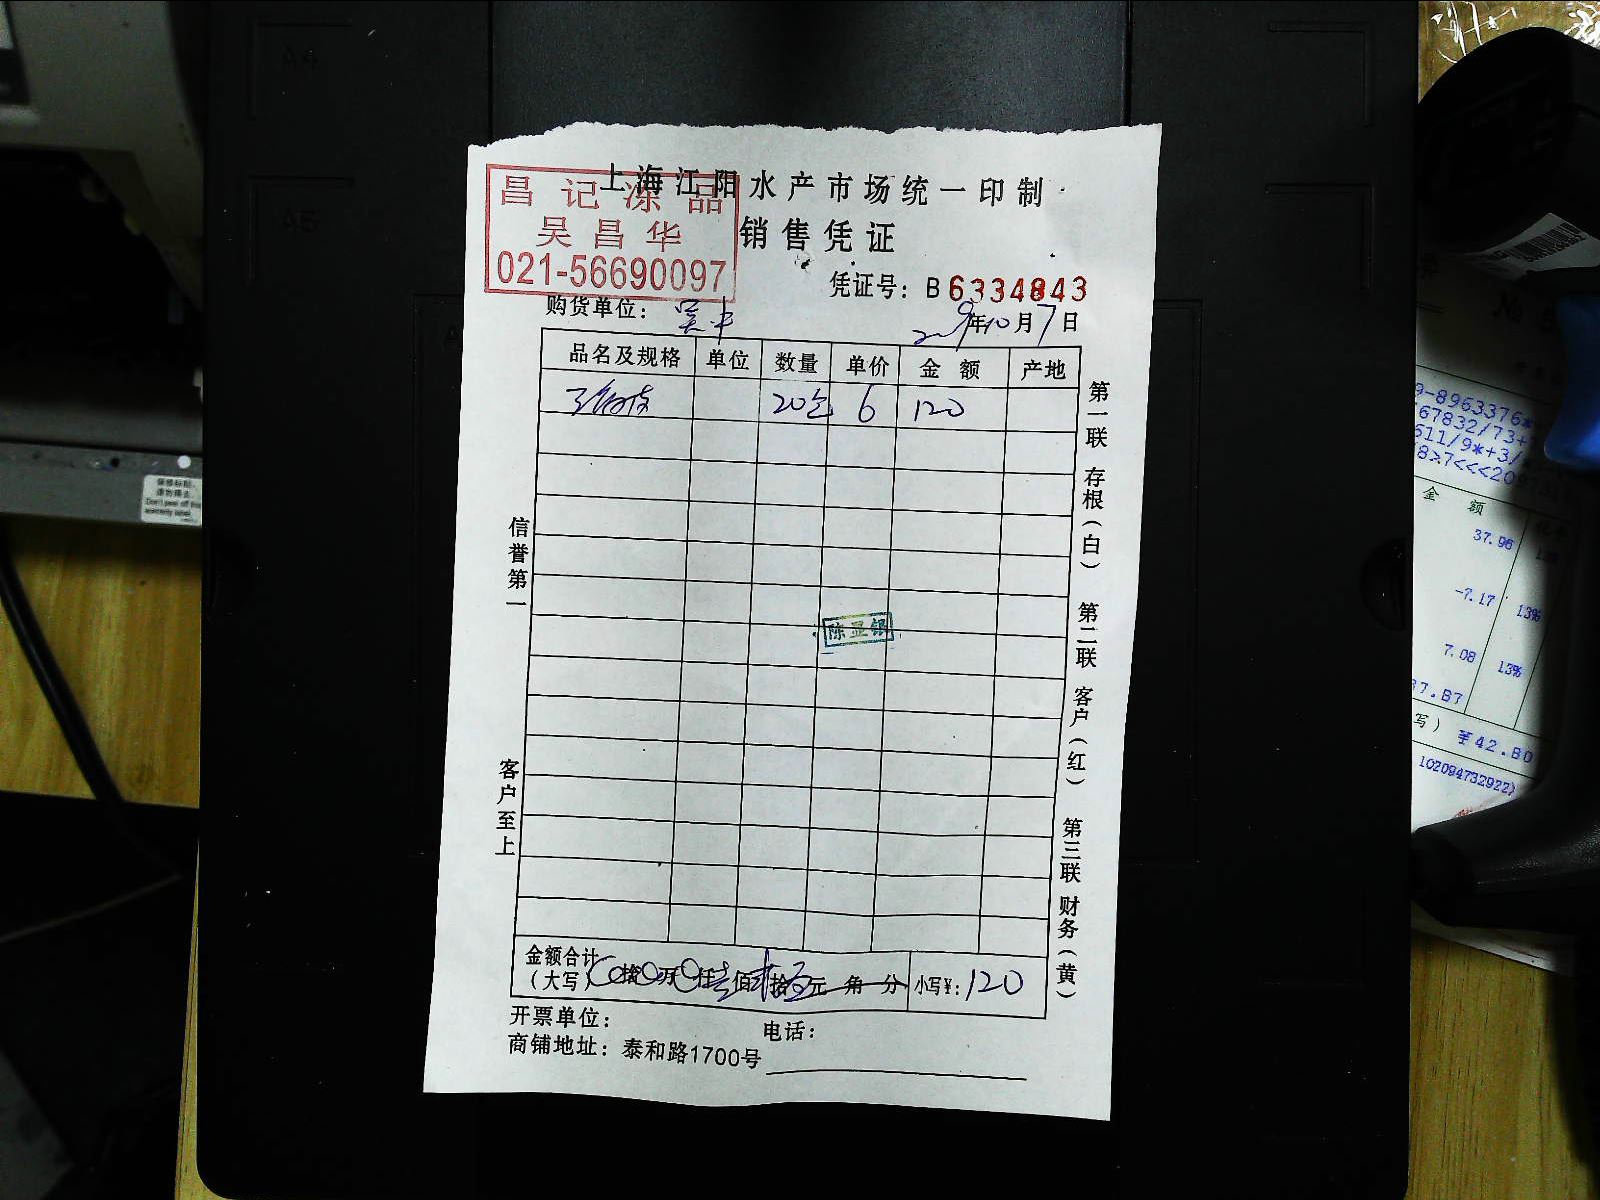 上海江阳水产市场统一印制
昌记冻品
吴昌华
021-56690097
销售凭证
凭证号: B6334843
购货单位: 吴中
2019年10月7日
品名及规格 单位 数量 单价 金额 产地
20包 6 120
第一联 存根(白) 第二联 客户(红) 第三联 财务(黄)
信誉第一
客户至上
陈显银
金额合计
(大写) 0拾0万0仟壹佰贰拾元 角 分 小写¥: 120
开票单位: 电话:
商铺地址: 泰和路1700号
A4
A5
Don't peel off the
warranty label
9-8963376*
67832/73+
611/9*+3/
8>7<<<20
金 额
37.96
-7.17 13%
7.08 13%
写) ¥42.80
102094732922)